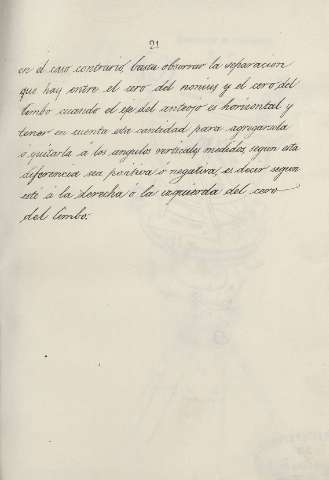 21
en el caso contrario, basta observar la separacion
que hay entre el cero del nonius y el cero del
limbo cuando el eje del anteojo es horizontal y
tener en cuenta esta cantidad para agregarsela
ó quitarla á los angulos verticales medidos, segun esta
diferencia sea positiva o negativa, es decir segun
esté á la derecha ó la izquierda del cero
del limbo.